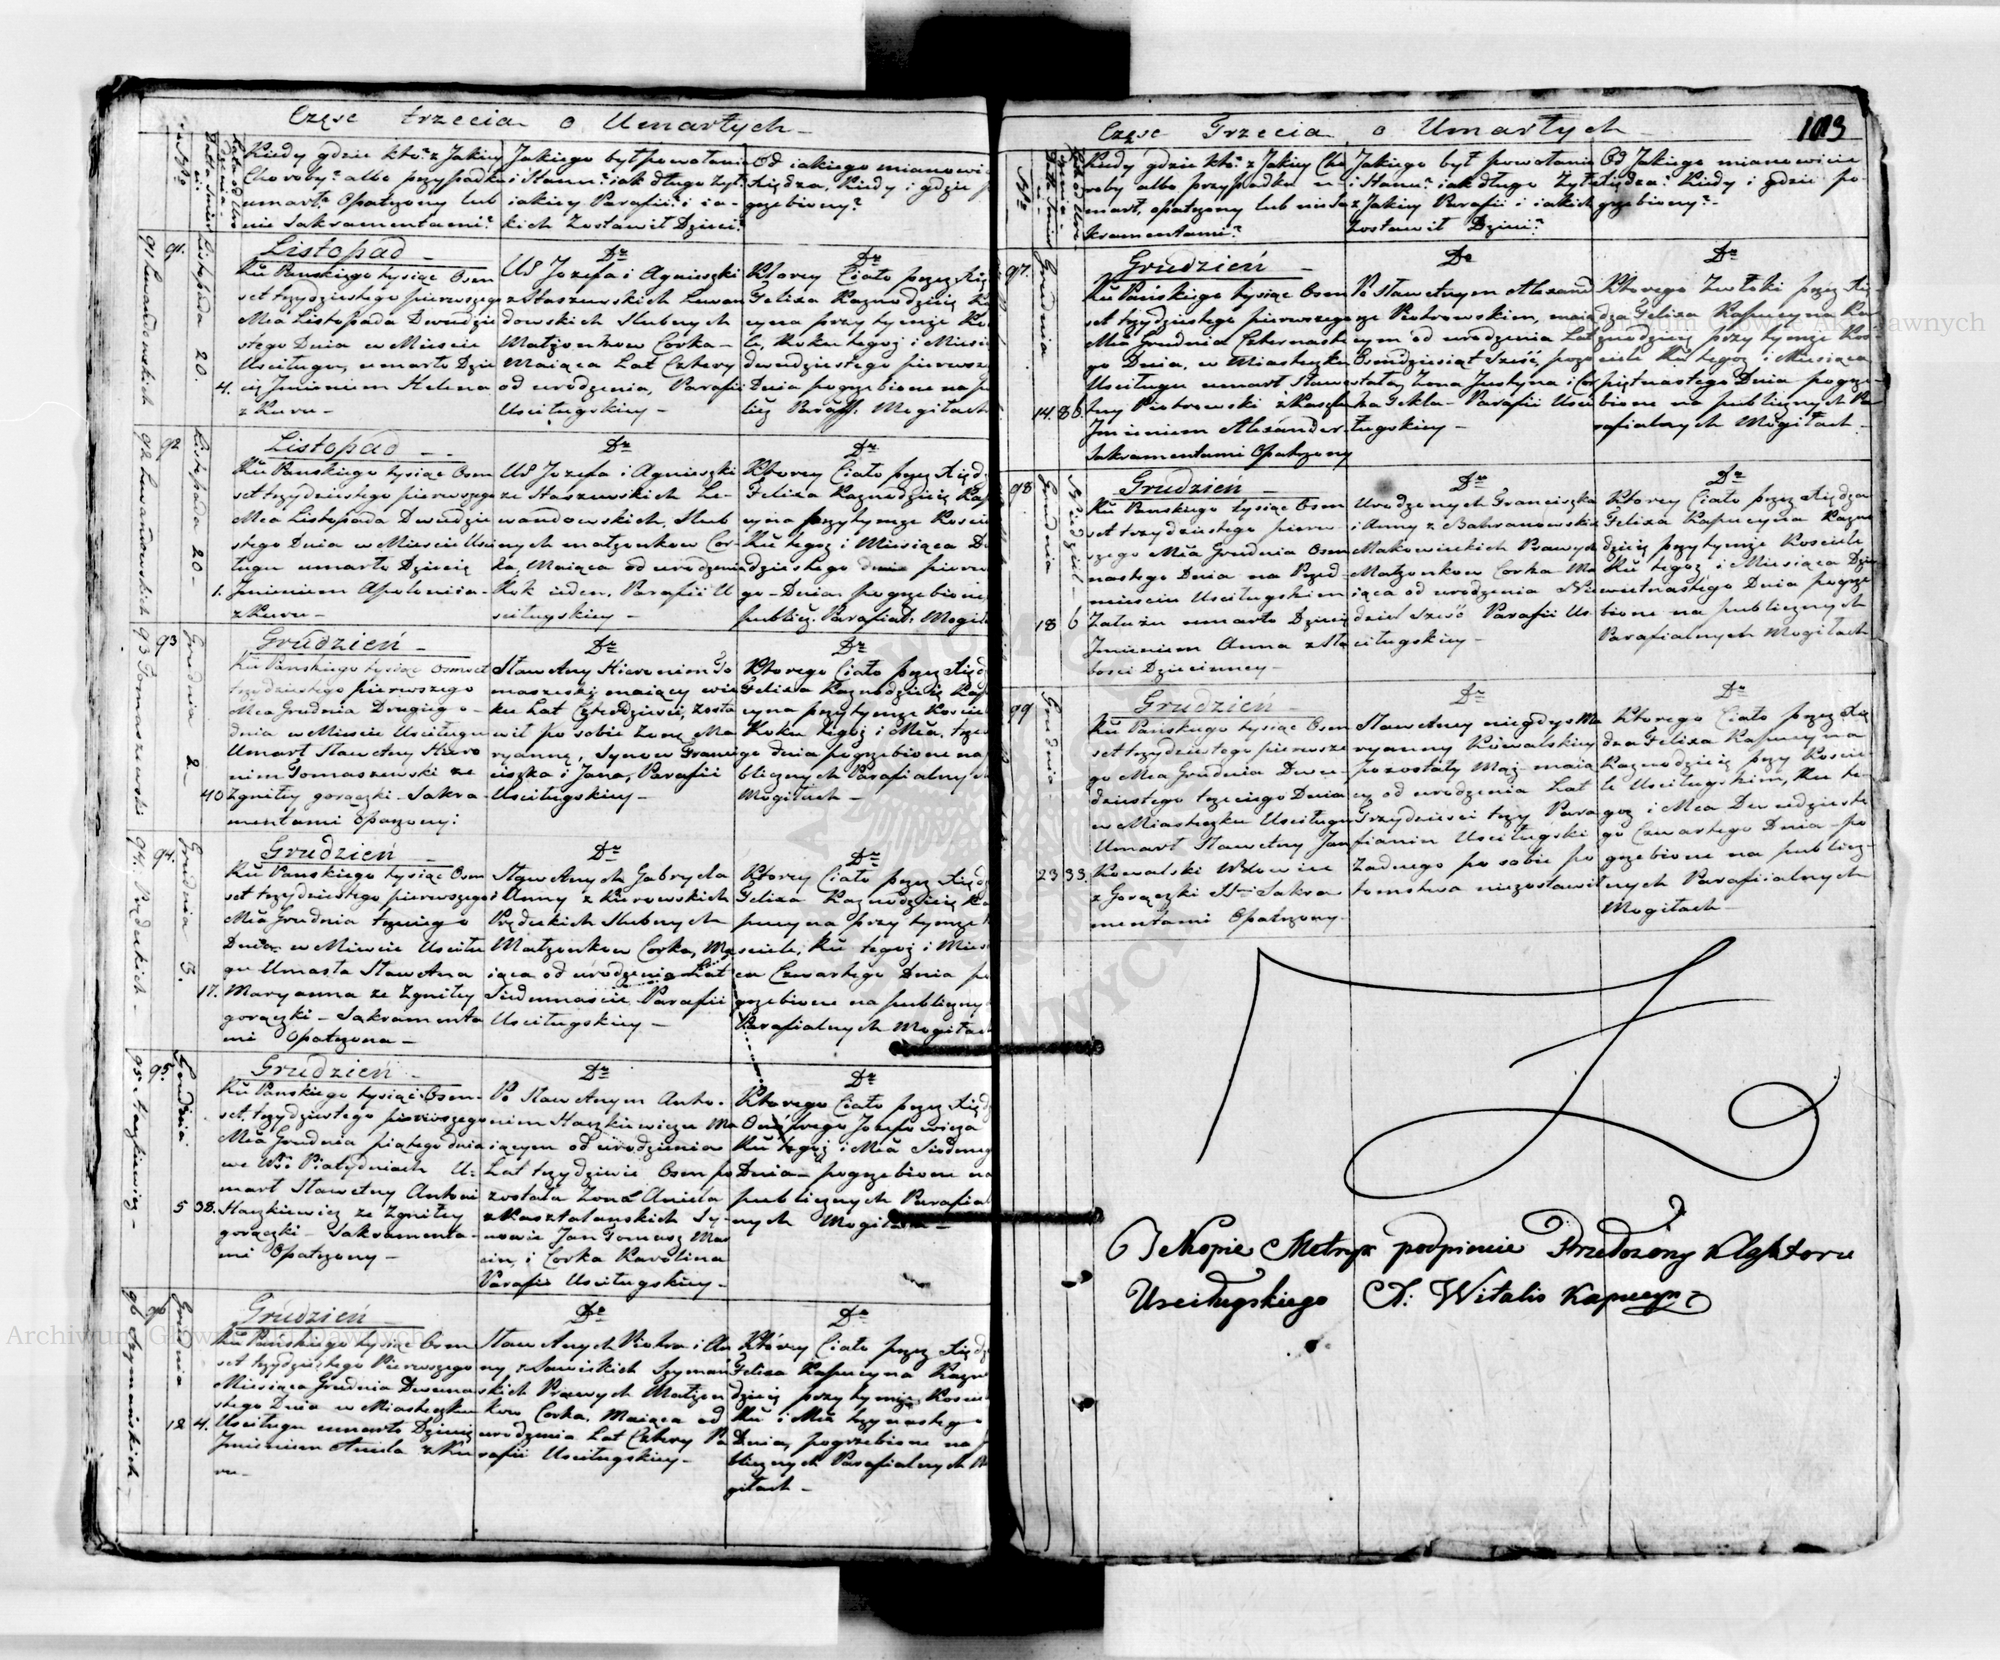 Częsc trzecia o Umarłych
Kiedy gdzie kto? z Jakiey
Choroby? albo przypadku
umarł? Opatrzony lub
nie Sakramentami?
Jakiego był powołania
i Stanu? iak długo żył?
iakiey Parafii? i ia-
kich Zostawił Dzieci?
Od iakiego mianowi
Xiędza, Kiedy i gdzie
grzebiony?
91.
91 Lewandowskich
Listopada 20.
4.
Listopad
Ru Panskiego tysiąc Osm
set trzydziestego pierwszego
Mca Listopada Dwudzie
stego Dnia w Miescie
Usciługu, umarło Dzie
cię Jmieniem Helena
z Kuru
Dr
Ud Jozefa i Agnieszki
z Staszewskich Lewan
dowskich Slubnych
Małżonkow Corka
Maiąca Lat Cztery
od urodzenia, Parafii
Usciługskiey
Dr
Ktorey Ciało przez Xię
Felixa Kaznodzieię
cyna przy tymże Ko
le, Roku tegoż i Miesi
dwudziestego pierwsz
Dnia pogrzebione na
licz Paraff. Mogiłach
92
92 Lewandowskich
Listopada 20
1.
Listopad
Ru Panskiego tysiąc Osm
set trzydziestego pierwszego
Mca Listopada Dwudzie
stego Dnia w Miescie Usci
ługu umarło Dziecię
Jmieniem Apolonia
z Kuru
Dr
Ud Jozefa i Agnieszki
ze Staszewskich Le-
wandowskich, Slub
nych małżonkow Cor-
ka, Maiąca od urodzenia
Rok ieden. Parafii U
sciługskiey
Dr
Ktorey Ciało przez Xięd
Felixa Kaznodzieię Kap
cyna przy tymże Koscie
Ru tegoż i Miesiąca D
dziestego dnia pierw
go Dnia pogrzebione
publicz. Parafial. Mogił
93
93 Tomaszewski
Grudnia 2
40
Grudzień
Ru Panskiego tysiąc Osmset
trzydziestego pierwszego
Mca Grudnia Drugiego
dnia w Miescie Usciługu
Umarł Sławetny Hiero
nim Tomaszewski ze
Zgniłey gorączki Sakra
mentami Opatrzony:
Dr
Sławetny Hieronim To
maszeski maiący wie
ku Lat Czterdzieści, zosta
wił po sobie Żonę Ma
ryannę, Synow Franci
iszka i Jana, Parafii
Usciługskiey
Dr
Ktorego Ciało przez Xięd
Felixa Kaznodzieię Kap
cyna przy tymże Koscie
Roku tegoż i Mca. trze
go dnia pogrzebione na
blicznych Parafialnych
Mogiłach
94.
94. Prędeckich
Grudnia 3.
17.
Grudzień
Ru Panskiego tysiąc Osm
set trzydziestego pierwszego
Mca Grudnia trzeciego
Dnia w Miescie Usciłu
gu Umarła Sławetna
Maryanna ze Zgniłey
gorączki Sakramenta
mi Opatrzona
Dr
Sławetnych Gabryela
i Anny z Kurowskich
Prędeckich Slubnych
Małżonkow Corka, Ma
iąca od urodzenia Lat
Siedemnaście Parafii
Usciługskiey
Dr
Ktorey Ciało przez Xiędz
Felixa Kaznodzieię Ka
pucyna przy tymże
sciele, Ru tegoż i Mies
ca Czwartego Dnia po
grzebione na publiczny
Parafialnych Mogiłach
95.
95. Haszkiewicz
Grudnia
5 38.
Grudzień
Ru Panskiego tysiąc Osm-
set, trzydziestego pierwszego
Mca Grudnia piątego dnia
we Wsi Piatydniach U-
marł Sławetny Antoni
Haszkiewicz ze Zgniłey
gorączki Sakramenta-
mi Opatrzony
Dr
Po Sławetnym Anto-
nim Haszkiewiczu Ma
iącym od urodzenia
Lat trzydzieści Osm po
zostala Żona Aniela
z Kasztalanskich Sy-
nowie Jan Tomasz Mar
cin, i Corka Karolina
Parafii Usciługskiey
Dr
Ktorego Ciało przez Xiędz
Onufrego Jozefowicza
Ru tegoż i Mca Siodmeg
Dnia pogrzebione na
publicznych Parafial
nych Mogiłach
96
96 Szymańskich
Grudnia
12 4.
Grudzień
Ru Panskiego tysiąc Osm
set trzydziestego Pierwszego
Miesiąca Grudnia Dwuna
stego Dnia w Miasteczku
Usciługu umarło Dziecię
Jmieniem Aniela z Ku
ru
Dr
Sławetnych Piotra i An
ny z Sawickich Szyman
skich Prawych Małżon
kow Corka. Maiąca od
urodzenia Lat Cztery Pa
rafii Usciługskiey
Dr
Ktorey Ciało przez Xiędz
Felixa Kapucyna Kazn
dzieię przy tymże Koscie
Ru i Mca trzynastego
Dnia, pogrzebione na
blicznych Parafialnych M
giłach
Częsc Trzecia o Umarłych
103
Kiedy gdzie kto? z Jakiey Cho
roby albo przypadku u-
marł, opatrzony lub nie Sa
kramentami?
Jakiego był powołania
i Stanu? iak długo Żył
z Jakiey Parafii i iakich
zostawił Dzieci?
Od Jakiego mianowicie
Xiędza? Kiedy i gdzie po-
grzebiony?
97.
Grudnia
14. 86.
Grudzień
Ru Pańskiego tysiąc Osm
set trzydziestego pierwszego
Mca Grudnia Czternaste
go Dnia, w Miasteczku
Usciługu umarł Sławe
tny Piotrowski z Kaszlu
Jmieniem Alexander
Sakramentami Opatrzony
Dr
Po Sławetnym Alexand
rze Piotrowskim, maią
cym od urodzenia Lat
Osmdziesiąt Sześć, pozo
stała, Żona Justyna i Cor
ka Tekla Parafii Usci
ługskiey
Dr
Ktorego Zwłoki przez Xię
dza Felixa Kapucyna Ka
znodzieię przy tymże Kos-
ciele Ru tegoż i Miesiąca
piętnastego Dnia pogrze-
bione na publicznych Pa
rafialnych Mogiłach.
98
Grudnia
18 6
Grudzień
Ru Panskiego tysiąc Osm
set trzydziestego pierw-
szego Mca Grudnia Osm
nastego Dnia na Przed
mieściu Usciługskiem
Załużu umarło Dziecię
Jmieniem Anna z Sła
bosci Dziecinney
Dr
Urodzonych Franciszka
i Anny z Bahranowskich
Makowieckich Prawych
Małżonkow Corka Ma
iąca od urodzenia Nie
dziel Sześć Parafii Us-
ciługskiey
Dr
Ktorey Ciało przez Xiędza
Felixa Kapucyna Kazno
dzieię przy tymże Kosciele
Ru tegoż i Miesiąca Dzie
więtnastego Dnia pogrze
bione na publicznych
Parafialnych Mogiłach
99
Grudnia
23 33.
Grudzień
Ru Pańskiego tysiąc Osm
set trzydziestego pierwsze
go Mca Grudnia Dwu-
dziestego trzeciego Dnia
w Miasteczku Usciługu
Umarł Sławetny Jan
Kowalski Wdowiec
z Gorączki Sak Sakra
mentami Opatrzony
Dr
Sławetney niegdys Ma
ryanny Kowalskiey
pozostały Mąż maią
cy od urodzenia Lat
Trzydzieści trzy Para
fianin Usciługski
Żadnego po sobie po
tomstwa niezostawił
Dr
Ktorego Ciało przez Xię
dza Felixa Kapucyna
Kaznodzieię przy Koscie
le Usciługskim, Ru te-
goż i Mca Dwudzieste
go Czwartego Dnia po
grzebione na publicz-
nych Parafiialnych
Mogiłach
Kopie Metryk podpisuie Przełożony Klasztoru
Usciługskiego X: Witalis Kapucyn
Archiwum Główne Akt Dawnych
Archiwum Główne Akt Dawnych